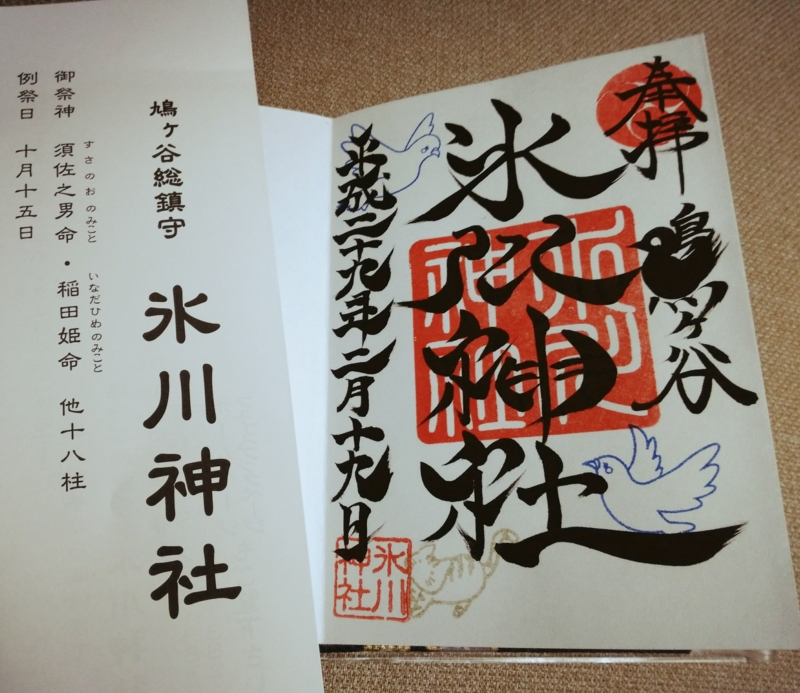 奉拝
鳩ヶ谷
氷川神社
氷川神社
平成二十九年二月十九日
氷川神社
鳩ヶ谷総鎮守 氷川神社
すさのおのみこと いなだひめのみこと
御祭神 須佐之男命・稲田姫命 他十八柱
例祭日 十月十五日